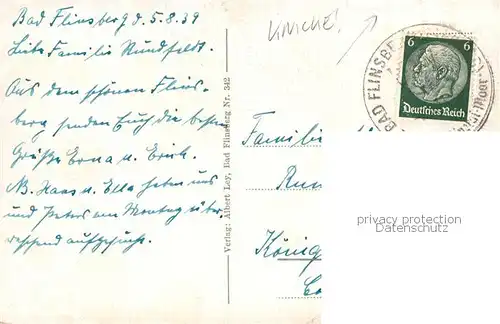 Bad Flinsberg d. 5.8.39
Liebe Familie Rundfeldt.
Aus dem schönen Flins-
berg senden Euch die besten
Grüße Erna u. Erich.
NB. Haas u. Ella haben uns
und Peters am Montag über-
raschend aufgesucht.
Verlag: Albert Ley, Bad Flinsberg Nr. 342
6 6
Deutsches Reich
BAD FLINSBE
Familie
Run
König
privacy protection
Datenschutz